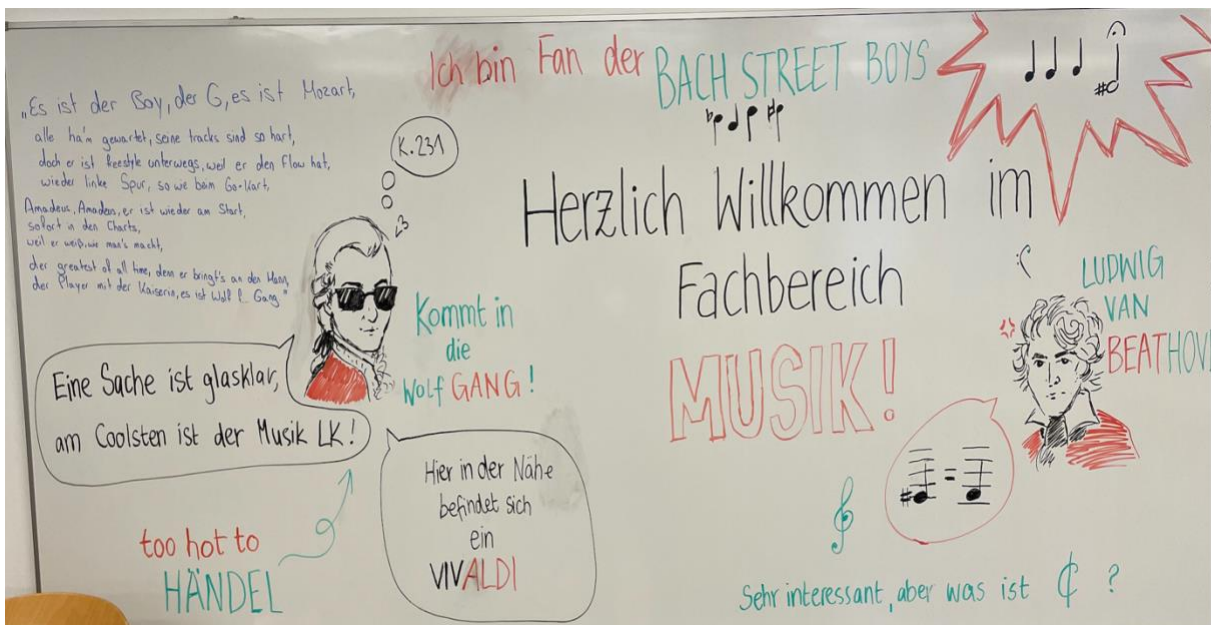 Ich bin Fan der BACH STREET BOYS
„Es ist der Boy, der G, es ist Mozart,
alle ha'm gewartet, seine tracks sind so hart,
doch er ist freestyle unterwegs, weil er den Flow hat,
wieder linke Spur, so wie beim Go-Kart,
Amadeus, Amadeus, er ist wieder am Start,
sofort in den Charts,
weil er weiß, wie man's macht,
der greatest of all time, denn er bringt's an den Mann,
der Player mit der Kaiserin, es ist Wolf Gang"
K.231
<3
Herzlich Willkommen im
Fachbereich
MUSIK!
Kommt in
die
Wolf GANG!
Eine Sache ist glasklar,
am Coolsten ist der Musik LK!
too hot to
HÄNDEL
Hier in der Nähe
befindet sich
ein
VIVALDI
:(
LUDWIG
VAN
BEATHOV
=
Sehr interessant, aber was ist ¢ ?